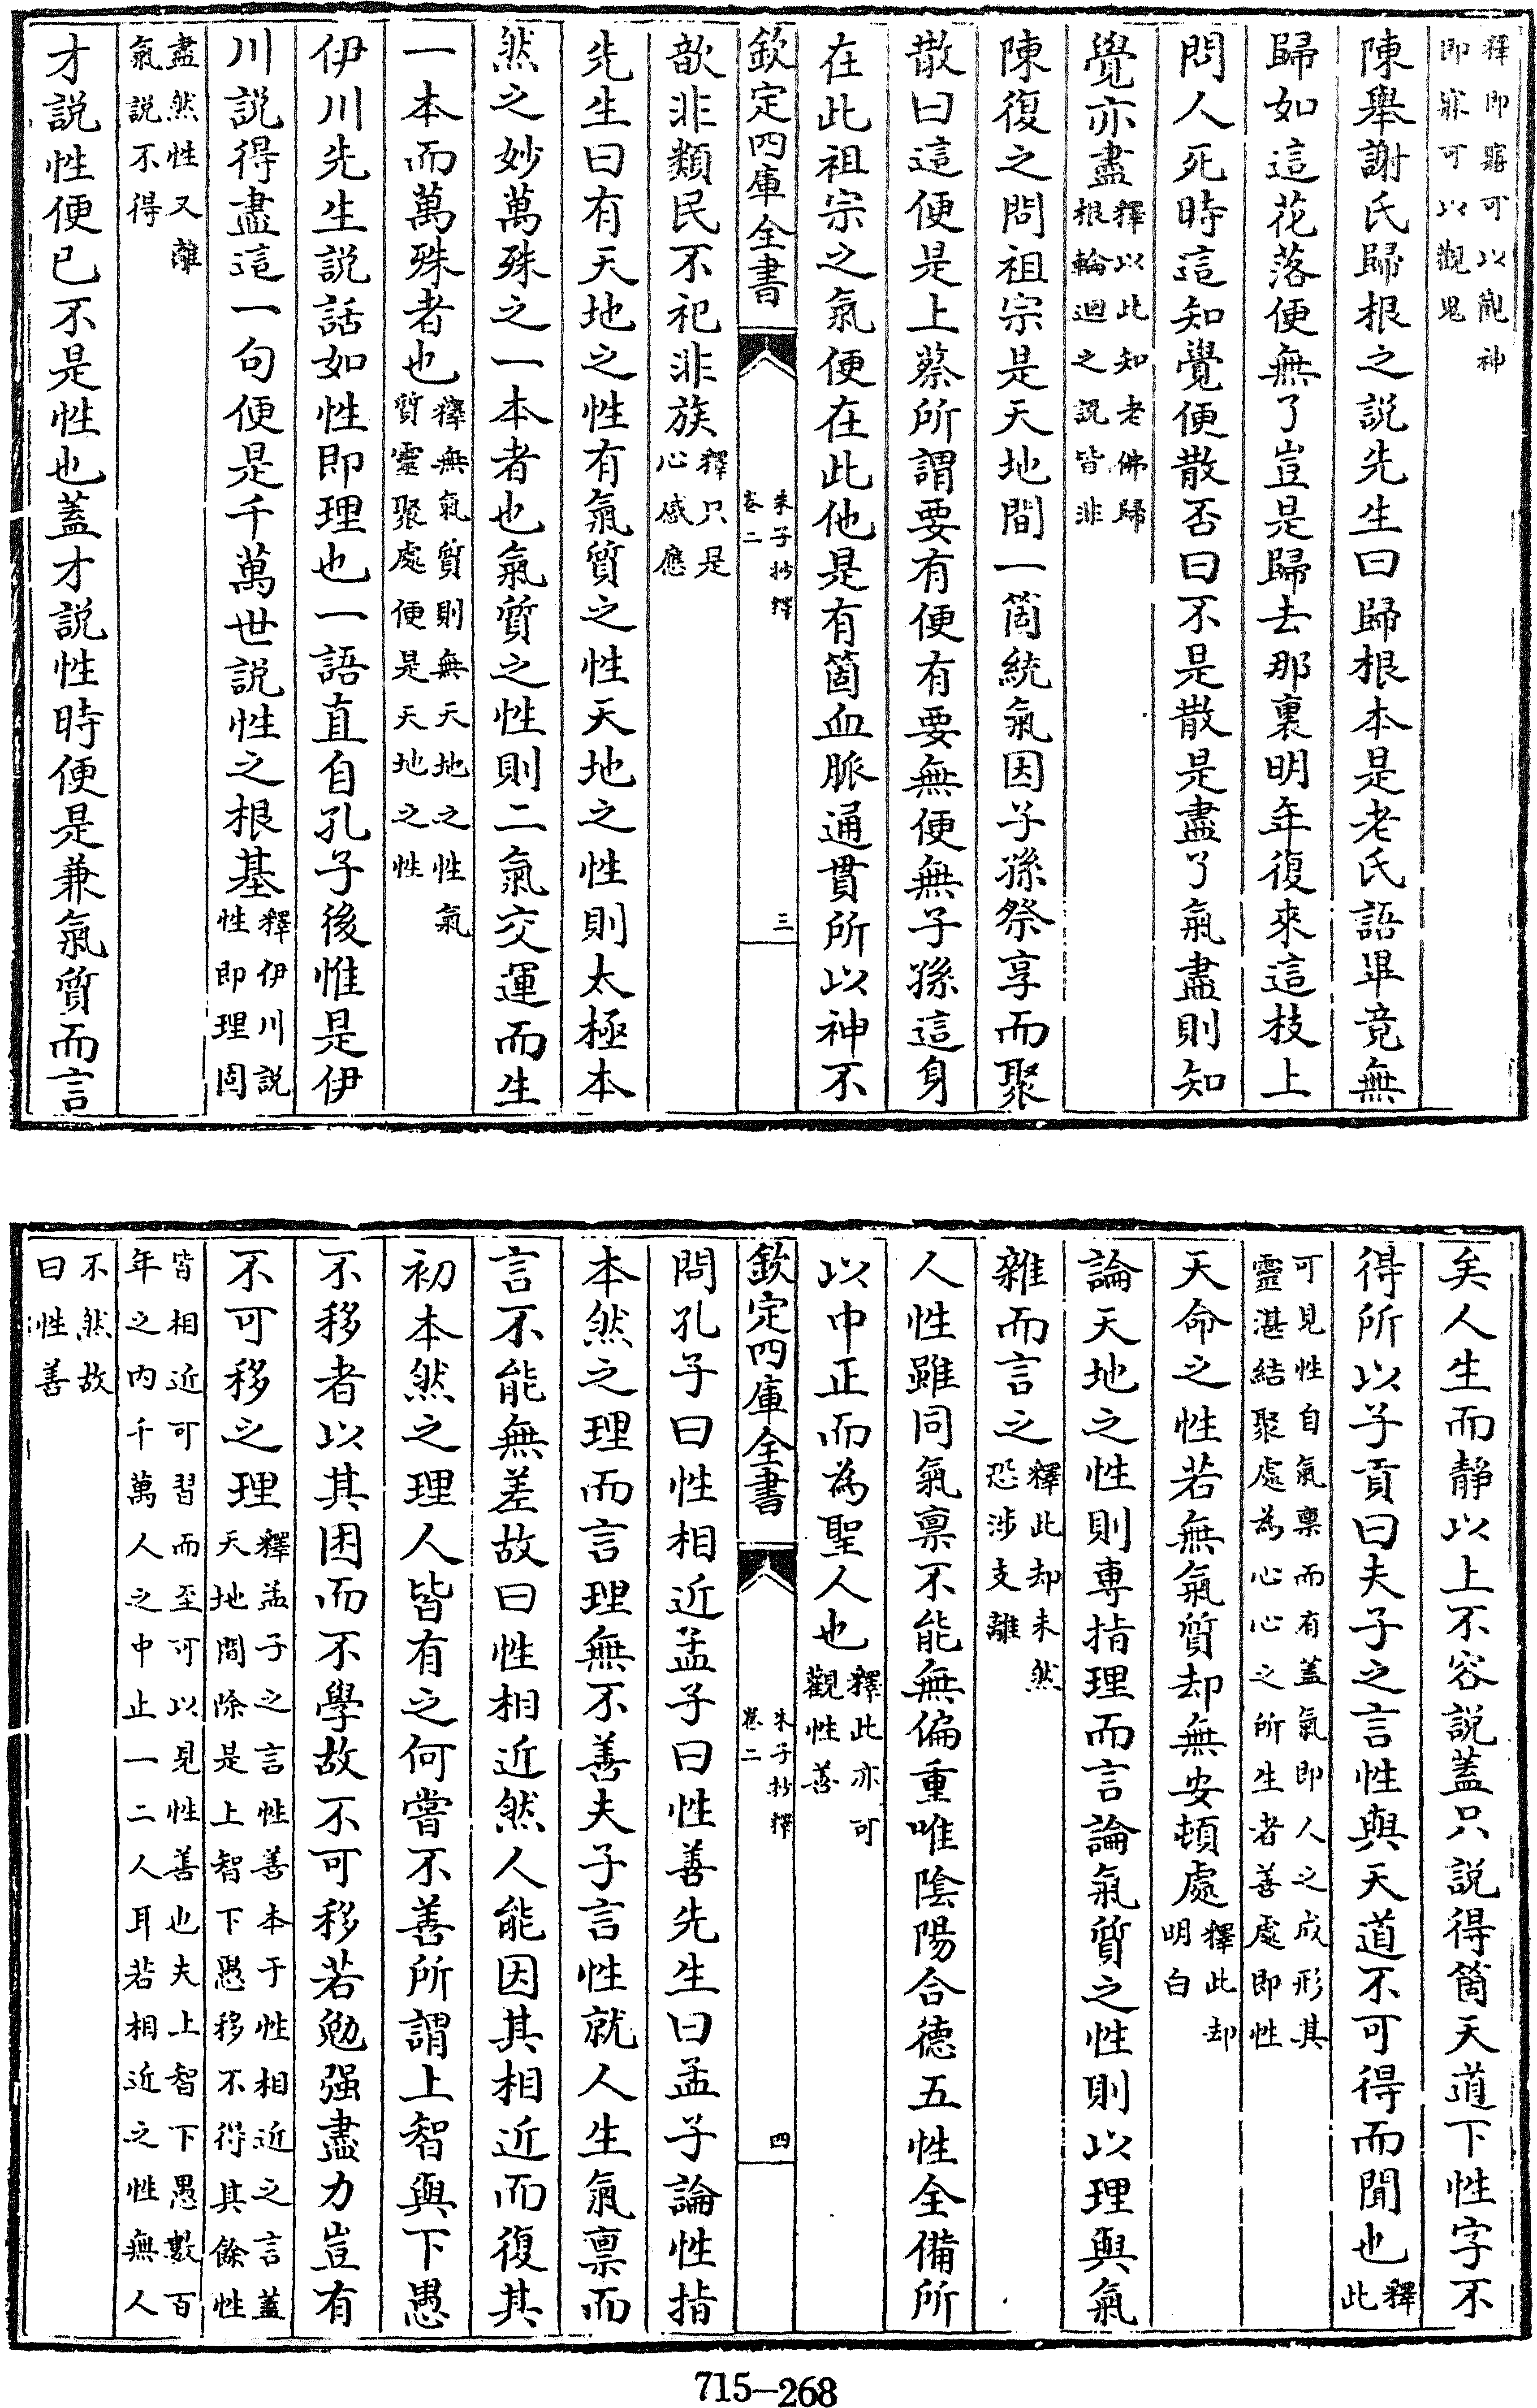 釋即寤可以觀神
即寐可以觀鬼
陳舉謝氏歸根之説先生曰歸根本是老氏語畢竟無
歸如這花落便無了豈是歸去那裏明年復來這枝上
問人死時這知覺便散否曰不是散是盡了氣盡則知
覺亦盡釋以此知老佛歸
根輪迴之説皆非
陳復之問祖宗是天地間一箇統氣因子孫祭享而聚
散曰這便是上蔡所謂要有便有要無便無子孫這身
在此祖宗之氣便在此他是有箇血脈通貫所以神不
欽定四庫全書
朱子抄釋
卷二
三
歆非類民不祀非族釋只是
心感應
先生曰有天地之性有氣質之性天地之性則太極本
然之妙萬殊之一本者也氣質之性則二氣交運而生
一本而萬殊者也釋無氣質則無天地之性氣
質靈聚處便是天地之性
伊川先生説話如性即理也一語直自孔子後惟是伊
川説得盡這一句便是千萬世説性之根基釋伊川説
性即理固
盡然性又離
氣説不得
才説性便已不是性也蓋才説性時便是兼氣質而言
矣人生而静以上不容説蓋只説得箇天道下性字不
得所以子貢曰夫子之言性與天道不可得而聞也釋
此
可見性自氣稟而有蓋氣即人之成形其
靈湛結聚處為心心之所生者善處即性
天命之性若無氣質却無安頓處釋此却
明白
論天地之性則專指理而言論氣質之性則以理與氣
雜而言之釋此却未然
恐涉支離
人性雖同氣稟不能無偏重唯陰陽合德五性全備所
以中正而為聖人也釋此亦可
觀性善
欽定四庫全書
朱子抄釋
卷二
四
問孔子曰性相近孟子曰性善先生曰孟子論性指
本然之理而言理無不善夫子言性就人生氣稟而
言不能無差故曰性相近然人能因其相近而復其
初本然之理人皆有之何嘗不善所謂上智與下愚
不移者以其困而不學故不可移若勉强盡力豈有
不可移之理釋孟子之言性善本于性相近之言蓋
天地間除是上智下愚移不得其餘性
皆相近可習而至可以見性善也夫上智下愚數百
年之内千萬人之中止一二人耳若相近之性無人
不然故
曰性善
715-268